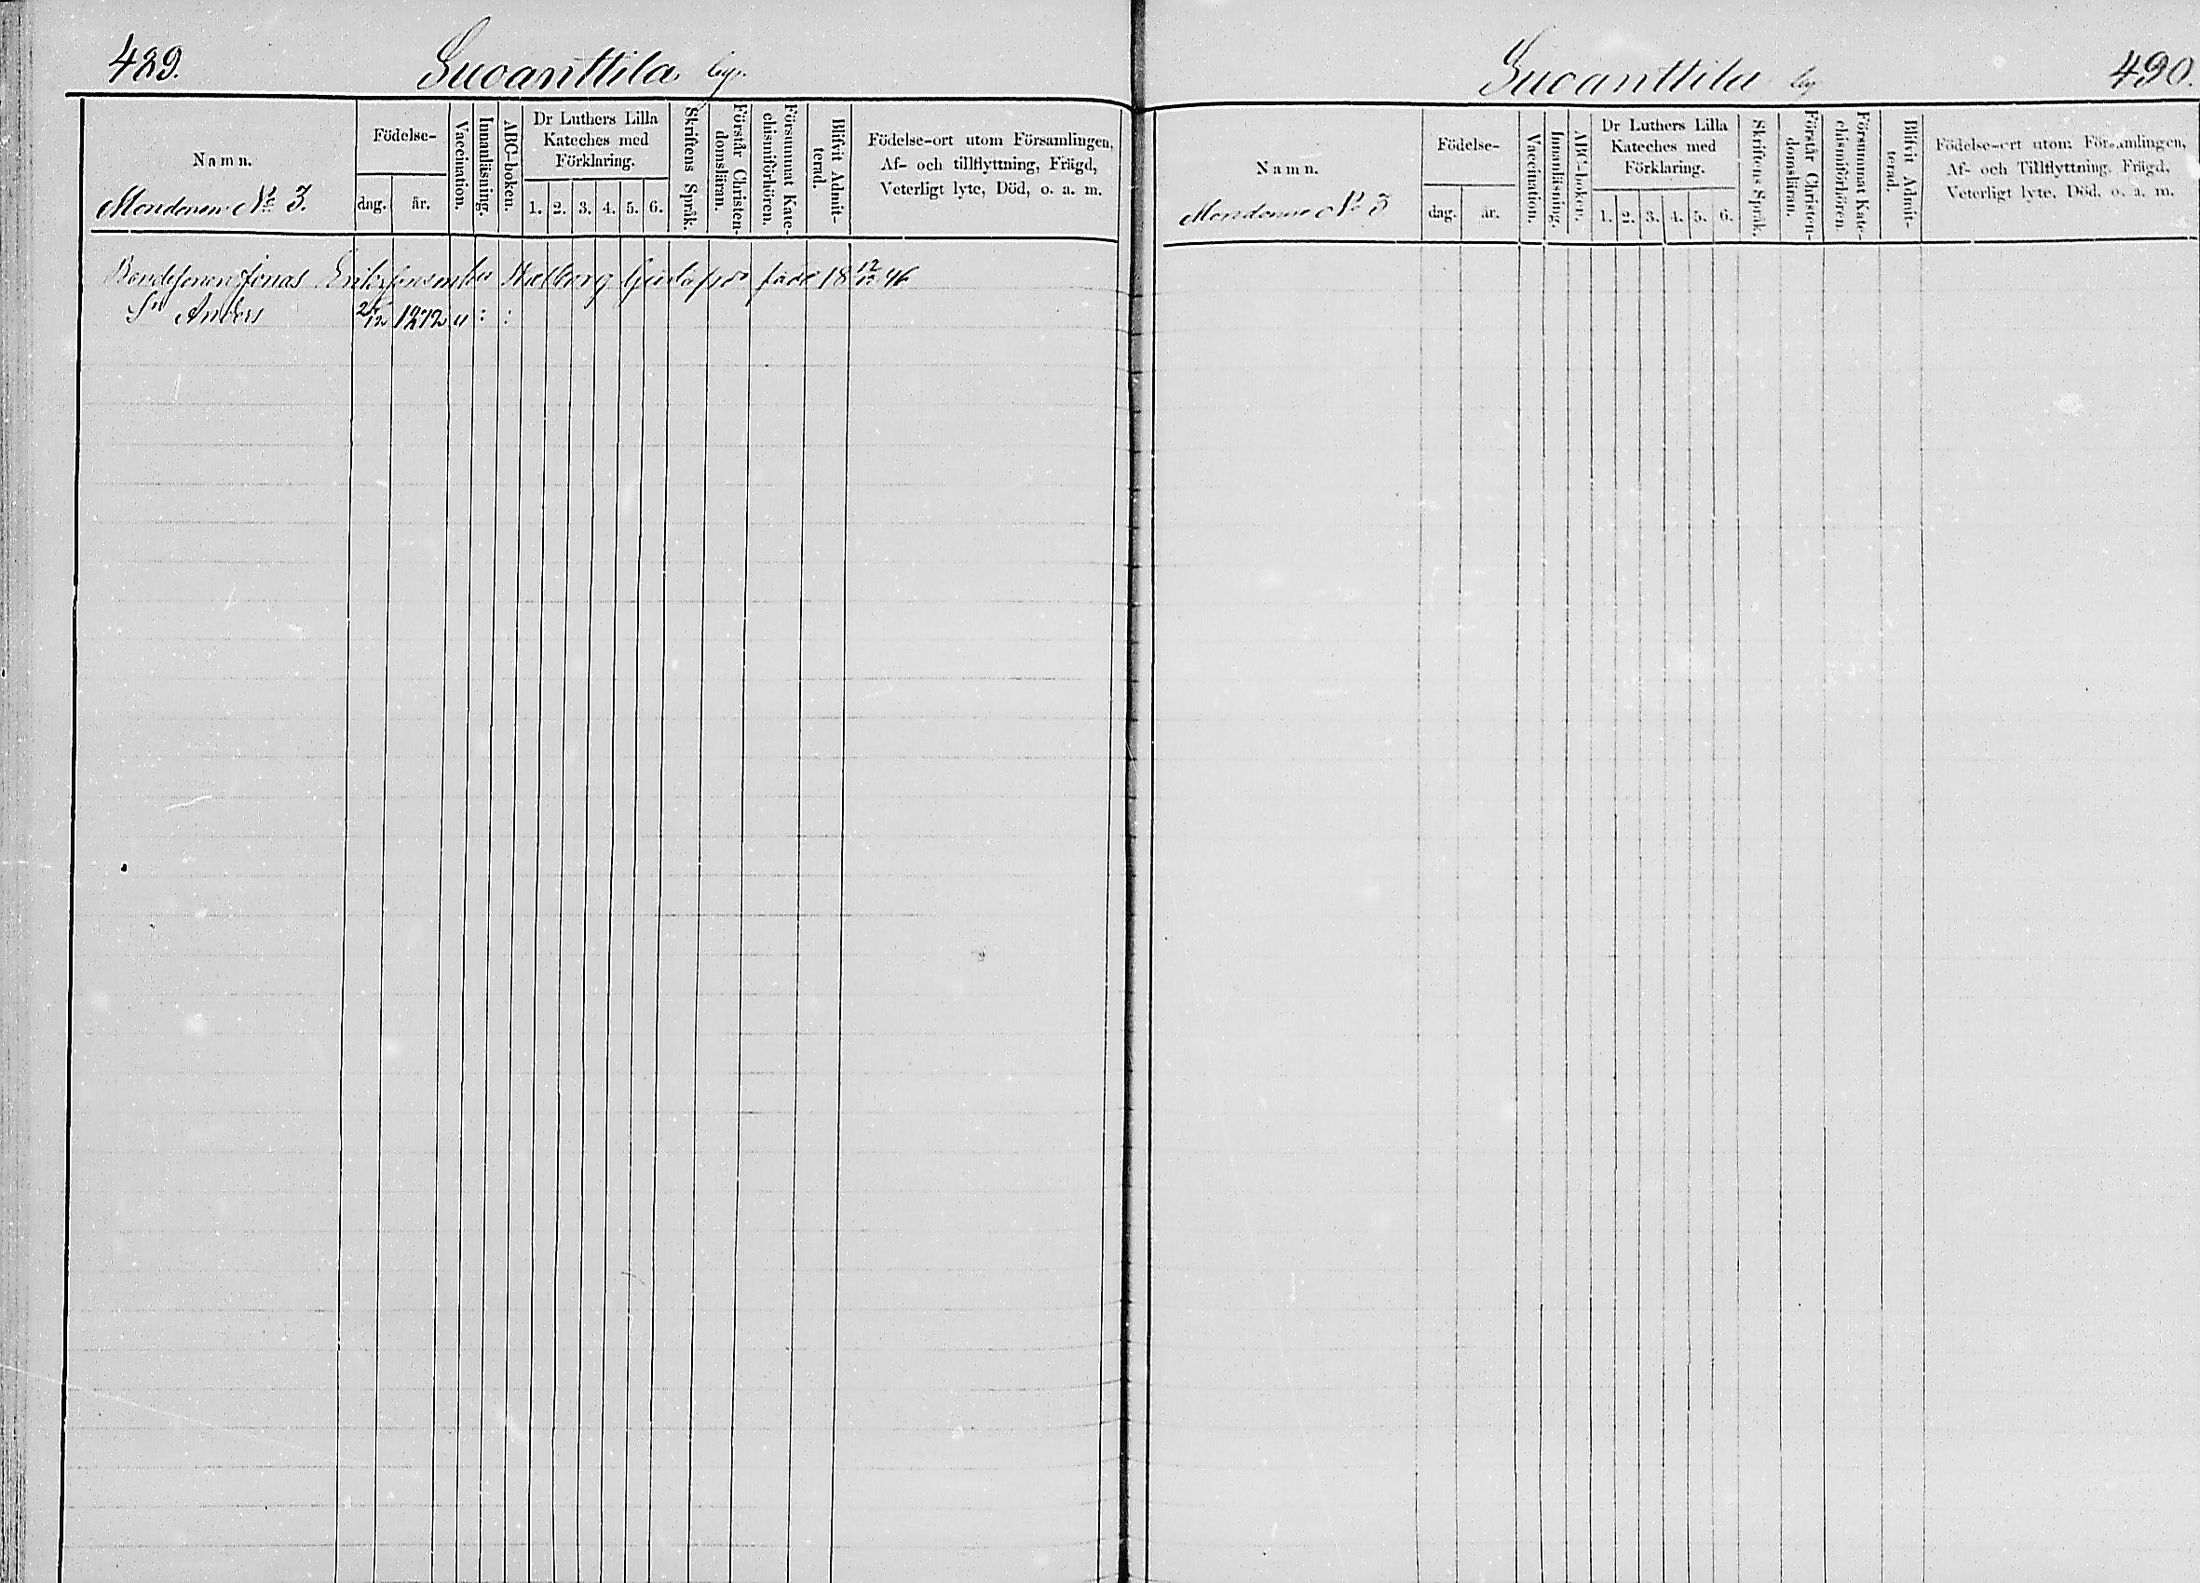 489.
Suoanttila by.
Namn.
Mononen No 3.
Födelse-
dag.
år.
Vaccination.
Innanläsning.
ABC-boken.
Dr Luthers Lilla
Kateches med
Förklaring.
1. 2. 3. 4. 5. 6.
Skriftens Språk.
Förstår Christen-
domsläran.
Försummat Kate-
chismiförhören.
Blifvit Admit-
terad.
Födelse-ort utom Församlingen,
Af- och tillflyttning, Frägd,
Veterligt lyte, Död, o. a. m.
Bondesonen Jonas född 18 12/12 46
Sn Anders 1272 " : :
Suoanttila by
490.
Namn.
Mononen No 3
Födelse-
dag.
år.
Vaccination.
Innanläsning.
ABC-boken.
Dr Luthers Lilla
Kateches med
Förklaring.
1. 2. 3. 4. 5. 6.
Skriftens Språk.
Förstår Christen-
domsläran.
Försummat Kate-
chismiförhören.
Blifvit Admit-
terad.
Födelse-ort utom Församlingen,
Af- och Tillflyttning, Frägd,
Veterligt lyte, Död, o. a. m.